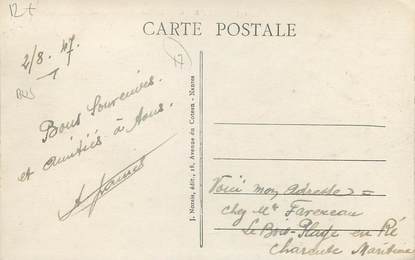 12+
CARTE POSTALE
17
2/8. 47.
Bons Souvenirs.
et amitiés à tous.
J. Nozais, édit., 18, Avenue du Coteau - Nantes
Voici mon adresse =
chez Mr Favereau
Le Bois-Plage en Ré
Charente Maritime